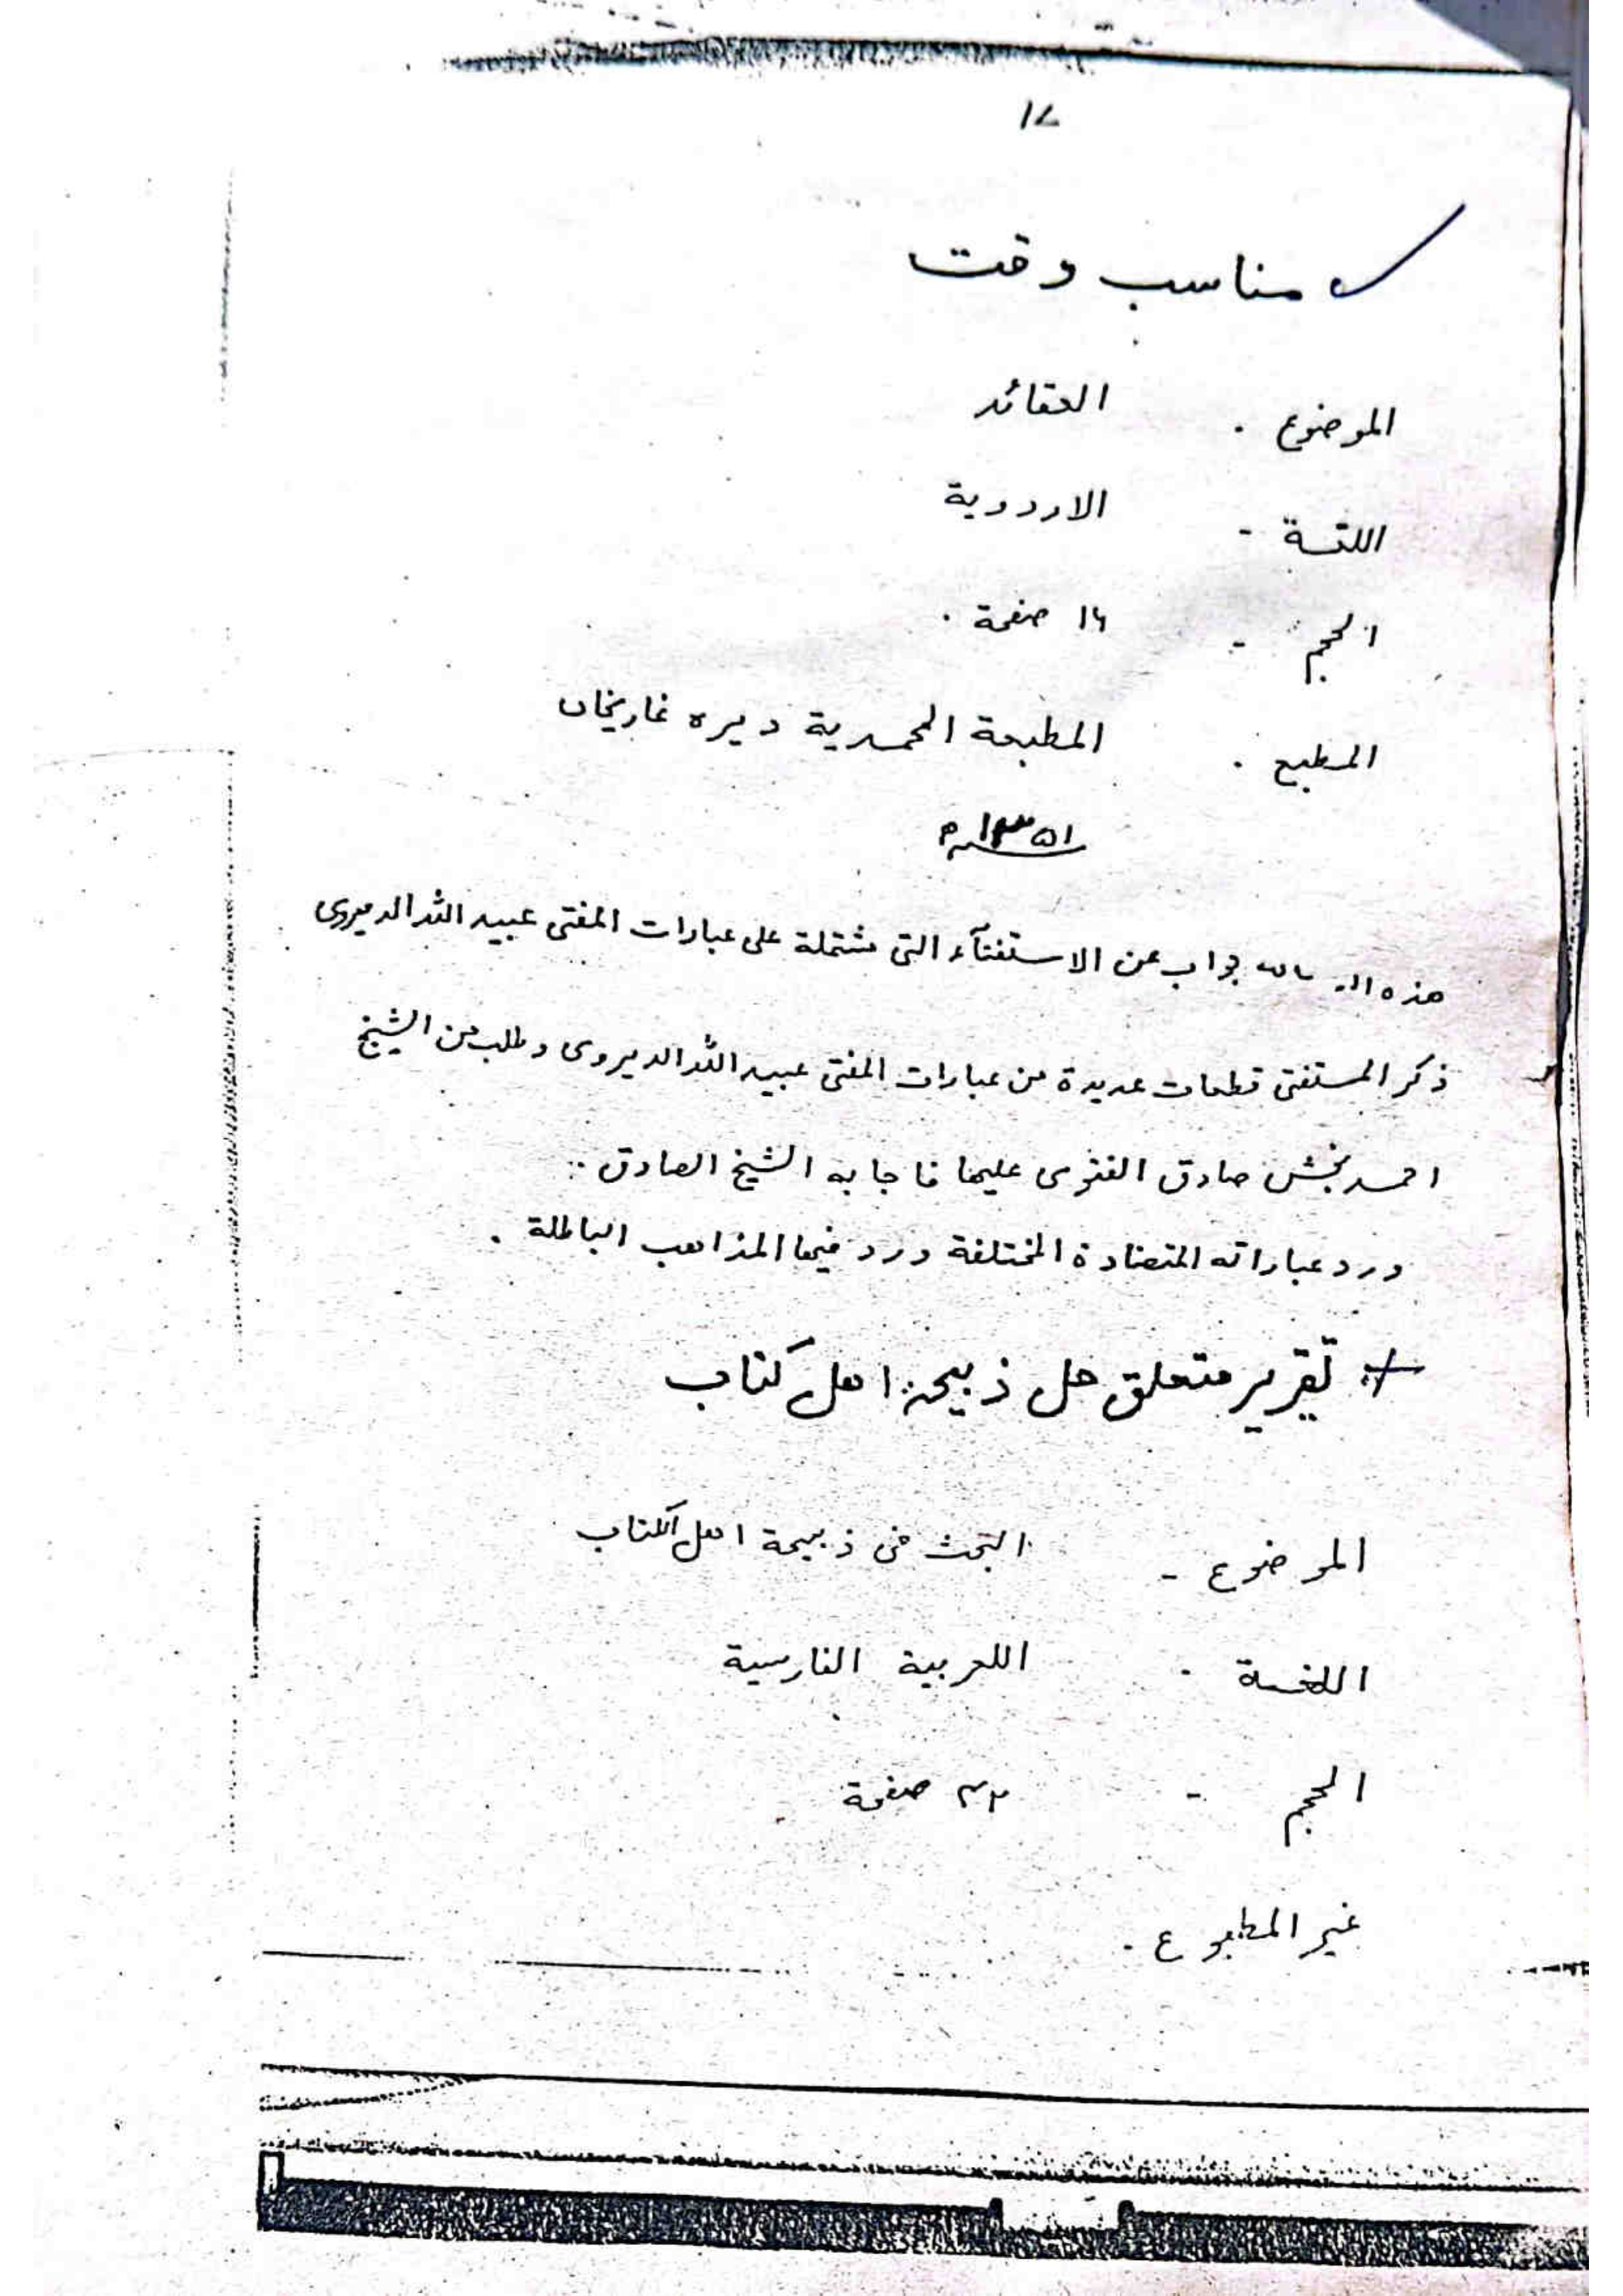 ۱۷
مناسب وقت
الموضوع . العقائد
اللغة - الاردوية
الحجم - ۱۶ صفحة .
المطبع . المطبعة المحمدية ديره غازيخان
هذه الرساله جواب عن الاستفتآء التى مشتملة على عبارات المفتى عبيد الله الديروى
ذكر المستفتى قطعات عديدة من عبارات المفتى عبيد الله الديروى وطلب من الشيخ
احمد بخش صادق الفتوى عليها فاجابه الشيخ الصادق :
ورد عباراته المتضادة المختلفة ورد فيها المذاهب الباطلة .
تقرير متعلق حل ذبيحہ اهل كتاب
الموضوع - البحث فى ذبيحة اهل الكتاب
اللغة . اللعربية الفارسية
الحجم - صفحة
غير المطبوع .